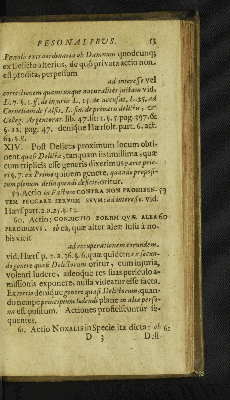 PESONALIBUS. 53
Pœnalis extraordinaria ob Damnum quodcunq;
ex Delicto alterius, de quô privata actio non
est prodita, perpessum
ad interesse vel
correctionem quamcunque naturaliter justam vid.
L. 7. §. 1. ff. de injuriis L. 15. de accusat. L. 25. ad
Corneliam de falsis,
Colleg. Argentorat. lib. 47. tit. 1. §. 5 pag. 397. &
§. 12. pag. 47. denique Harsolt. part. 6. act.
XIV. Post Delicta proximum locum obti-
nent quasi Delicta, tanquam istis simillima, quæ
cum triplicis esse generis dixerimus parte prio-
ri §. 7. ex Primo quidem genere, quando propositum
plenum delinquendi deficit oritur.
59. Actio in Factum CONTRA NON PROHIBEN- 59
TEM PECCARE SERVUM SUUM: ad interesse. vid.
Harsf. part. 2. q. 25. §. 12.
60. Actio; CONDICTIO EORUM QUÆ ALEA 60
PERDIDIMUS, ob ea, quæ alter aleæ lusu â no-
bis vicit
ad recuperationem eorundem.
vid. Harsf. p. 2. q. 26. §. 6. quæ quidem ex secun-
do genere quasi Delictorum oritur, cum injuria,
volenti ludere, adeoque res suas periculo a-
missionis exponere, nulla videatur esse facta.
Ex tertio denique genere quasi Delictorum, quan-
do nempe principium ludendi plane in alia perso-
na est positum, Actiones proficiscuntur se-
quentes.
61. Actio NOXALIS in Specie ita dicta: ob 61
D 3 Deli-